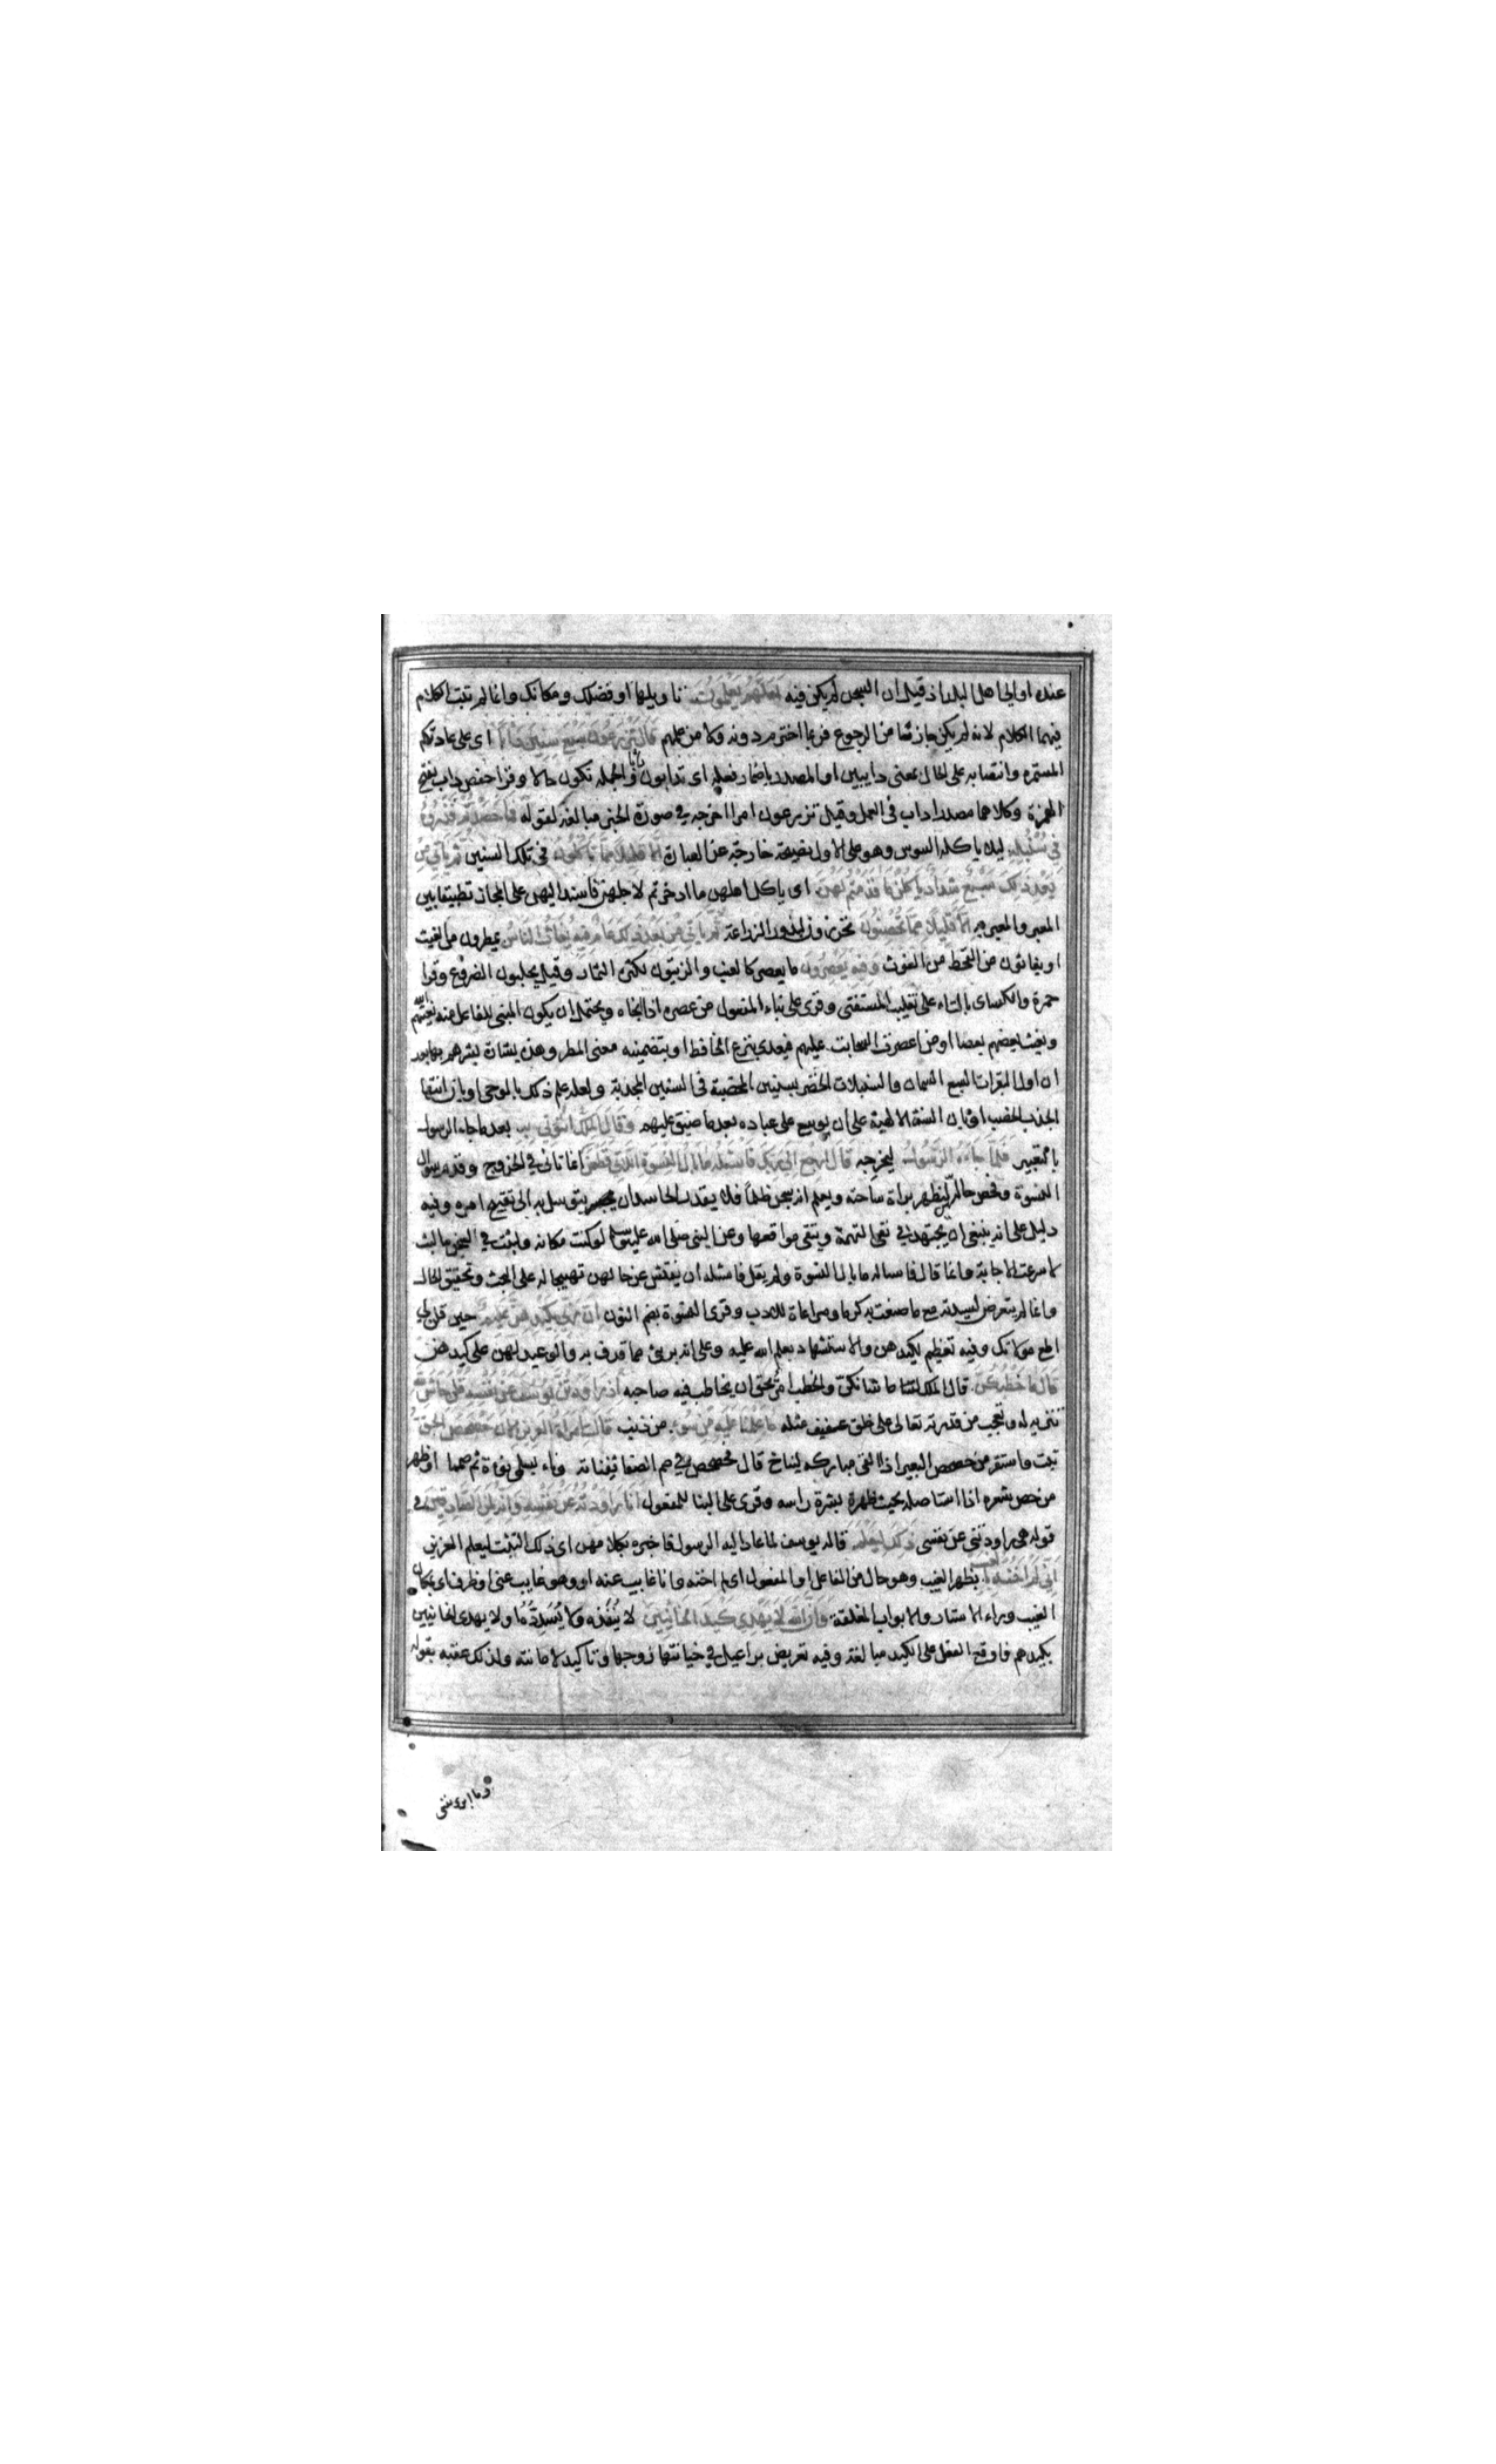 عنده او الى اهل البلد اذ قيل ان السجن لم يكن فيه لعلهم يعلمون تاويلها او فضلك ومكانك وانما لم تبت الكلام
فيهما الكلام لانه لم يكن جازما من الرجوع فربما اخترم دونه ولا من علمهم قال تزرعون سبع سنين دأبا اى على عادتكم
المستمره وانتصابه على الحال بمعنى دايبين او المصدر باضمار فعله اى تدابون دابا والجمله تكون حالا وقرا حفص داب بفتح
الهمزة وكلاهما مصدر اداب فى العمل وقيل تزرعون امرا اخرجه في صورة الخبر مبالغة لقوله فما حصدتم فذروه
في سنبله ليلا ياكله السوس وهو على الاول نصيحة خارجة عن العبارة الا قليلا مما تاكلون فى تلك السنين ثم ياتي من
بعد ذلك سبع شداد ياكلن ما قدمتم لهن اى ياكل اهلهن ما ادخرتم لاجلهن فاسند اليهن على المجاز تطبيقا بين
المعبر والمعبر به الا قليلا مما تحصنون تحرزون لبذور الزراعة ثم ياتي من بعد ذلك عام فيه يغاث الناس يمطرون من الغيث
او يغاثون من القحط من الغوث وفيه يعصرون ما يعصر كالعنب والزيتون لكثرة الثمار وقيل يحلبون الضروع وقرا
حمزة والكساى بالتاء على تغليب المستفتى وقرى على بناء المفعول من عصره اذا انجاه ويحتمل ان يكون المبنى للفاعل منه يغيثهم الله
ويغيث بعضهم بعضا او من اعصرت السحابت عليهم فعدى بنزع الخافظ او بتضمينه معنى المطر وهذه بشارة بشرهم بها بعد
ان اول البقرات السبع السمان والسنبلات الخضر بسنين المخصبة فى السنين المجدبة ولعله علم ذلك بالوحى او بان انتهاء
الجدب الخصب او بان السنة الالهية على ان يوسع على عباده بعد ما ضيق عليهم وقال الملك ائتونى به بعد ما جاه الرسول
بالتعبير فلما جاءه الرسول ليخرجه قال ارجع الى ربك فاسئله ما بال النسوة اللاتي قطعن انما تانى في الخروج وقدم سوال
النسوة وفحص حالهن ليظهر براة ساحته ويعلم انه سجن ظلما فلا يقدر الحاسد ان يتوسل به الى تقبيح امره وفيه
دليل على انه ينبغى ان يجتهد في نفى التهمة ويتقى مواقعها وعن النبى صلى الله عليه وسلم لو كنت مكانه ولبثت في السجن ما لبث
لاسرعت الاجابة وانما قال فاساله ما بال النسوة ولم يقل فاسئله ان يفتش عن حالهن تهييجا له على البحث وتحقيق الحال
وانما لم يتعرض لسيدته مع ما صنعت به كرما ومراعاة للادب وقرى النسوة بضم النون ان ربي بكيدهن عليم حين قلن لي
اطع مولاتك وفيه تعظيم لكيدهن والاستشهاد بعلم الله عليه وعلى انه برئ مما قذف به والوعيد لهن على كيدهن
قال ما خطبكن قال الملك لهن ما شانكن والخطب امر يحق ان يخاطب فيه صاحبه اذ راودتن يوسف عن نفسه قلن حاش لله
تنزيه له وتعجب من قدرته تعالى على خلق عفيف مثله ما علمنا عليه من سوء من ذنب قالت امراة العزيز الان حصحص الحق
ثبت واستقر من حصحص البعير اذا القى مباركه ليناخ قال فحصحص في صم الصفا ثفناته وناء بسلمى نوءة ثم صمما او ظهر
من حص شعره اذا استاصله بحيث ظهرة بشرة راسه وقرى على البنا للمفعول انا راودته عن نفسه وانه لمن الصادقين في
قوله هى راودتنى عن نفسى ذلك ليعلم قاله يوسف لما عاد اليه الرسول فاخبره بكلامهن اى ذلك التثبت ليعلم العزيز
اني لم اخنه بالغيب بظهر الغيب وهو حال من الفاعل او المفعول اى لم اخنه وانا غايب عنه او وهو غايب عنى او ظرف اى بمكان
الغيب وراء الاستار والابواب المغلقة وان الله لا يهدي كيد الخائنين لا ينفذه ولا يسدده او لا يهدى الخائنين
بكيدهم فاوقع الفعل على الكيد مبالغة وفيه تعريض براعيل في خيانتها زوجها وتاكيد لامانته ولذلك عقبه بقوله
وما ابرئ نفسى